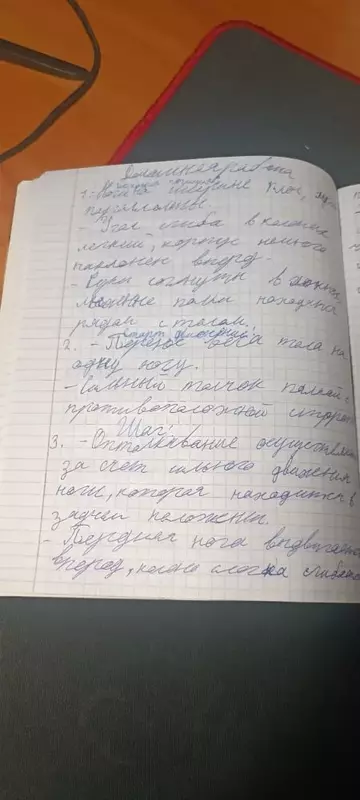 1. - Ноги на ширине плеч,
параллельны.
- Угол сгиба в коленях
легкий, корпус немного
наклонен вперед.
- Руки согнуты в локтях,
палки находятся
рядом с телом.
2. - Перенос веса тела на
одну ногу.
- Сильный толчок палкой с
противоположной стороны
Шаг:
3. - Отталкивание осуществля
за счет сильного движения
ноги, которая находится в
заднем положении.
- Передняя нога выдвигается
вперед, колено слегка сгибает